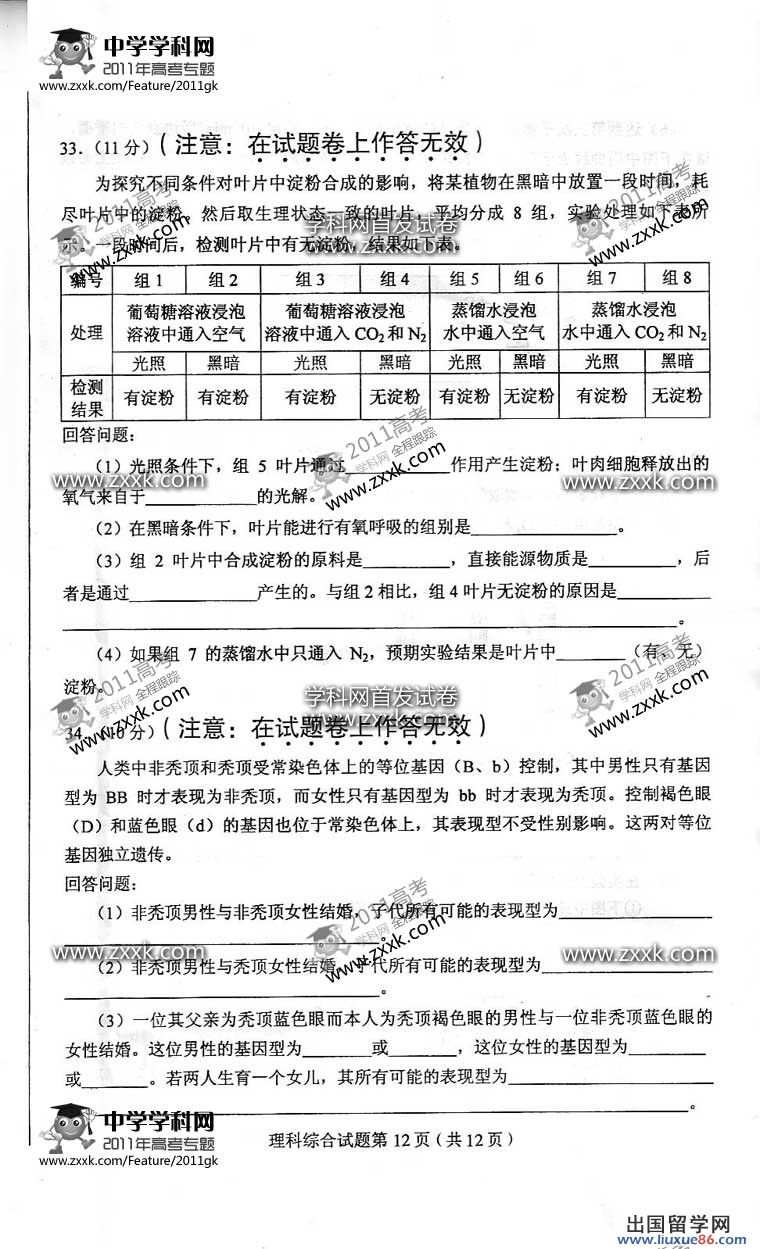 中学学科网
2011年高考专题
www.zxxk.com/Feature/2011gk
33．（11分）（注意：在试题卷上作答无效）
为探究不同条件对叶片中淀粉合成的影响，将某植物在黑暗中放置一段时间，耗
尽叶片中的淀粉。然后取生理状态一致的叶片，平均分成 8 组，实验处理如下表所
示。一段时间后，检测叶片中有无淀粉，结果如下表。
学科网首发试卷
www.zxxk.com
2011高考
学科网 全程跟踪
www.zxxk.com
2011高考
学科网 全程跟踪
www.zxxk.com
编号 组1 组2 组3 组4 组5 组6 组7 组8
处理 葡萄糖溶液浸泡 葡萄糖溶液浸泡 蒸馏水浸泡 蒸馏水浸泡
溶液中通入空气 溶液中通入 CO₂和 N₂ 水中通入空气 水中通入 CO₂和 N₂
光照 黑暗 光照 黑暗 光照 黑暗 光照 黑暗
检测结果 有淀粉 有淀粉 有淀粉 无淀粉 有淀粉 无淀粉 有淀粉 无淀粉
回答问题：
（1）光照条件下，组 5 叶片通过________作用产生淀粉；叶肉细胞释放出的
氧气来自于________的光解。
2011高考
学科网 全程跟踪
www.zxxk.com
www.zxxk.com
www.zxxk.com
（2）在黑暗条件下，叶片能进行有氧呼吸的组别是________。
（3）组 2 叶片中合成淀粉的原料是________，直接能源物质是________，后
者是通过________产生的。与组 2 相比，组 4 叶片无淀粉的原因是________
________。
（4）如果组 7 的蒸馏水中只通入 N₂，预期实验结果是叶片中________（有、无）
淀粉。
2011高考
学科网 全程跟踪
www.zxxk.com
学科网首发试卷
www.zxxk.com
2011高考
学科网 全程跟踪
www.zxxk.com
34．（10分）（注意：在试题卷上作答无效）
人类中非秃顶和秃顶受常染色体上的等位基因（B、b）控制，其中男性只有基因
型为 BB 时才表现为非秃顶，而女性只有基因型为 bb 时才表现为秃顶。控制褐色眼
（D）和蓝色眼（d）的基因也位于常染色体上，其表现型不受性别影响。这两对等位
基因独立遗传。
回答问题：
（1）非秃顶男性与非秃顶女性结婚，子代所有可能的表现型为________
________。
2011高考
学科网 全程跟踪
www.zxxk.com
www.zxxk.com
www.zxxk.com
（2）非秃顶男性与秃顶女性结婚，子代所有可能的表现型为________
________。
（3）一位其父亲为秃顶蓝色眼而本人为秃顶褐色眼的男性与一位非秃顶蓝色眼的
女性结婚。这位男性的基因型为________或________，这位女性的基因型为________
或________。若两人生育一个女儿，其所有可能的表现型为________
________。
中学学科网
2011年高考专题
www.zxxk.com/Feature/2011gk
理科综合试题第 12 页（共 12 页）
出国留学网
www.liuxue86.com